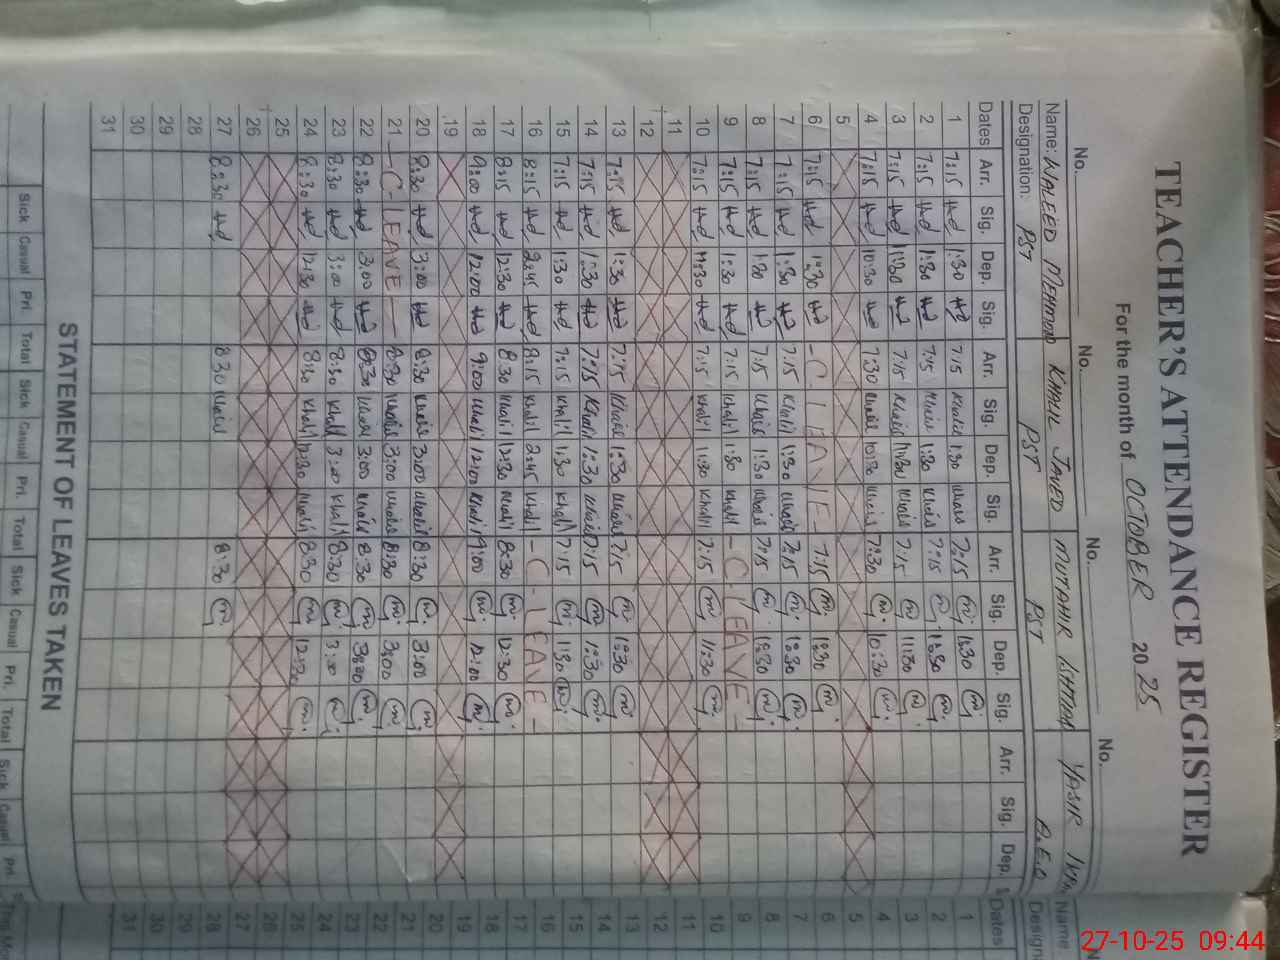 TEACHER'S ATTENDANCE REGISTER
For the month of OCTOBER 2025
No. No. No. No.
Name: WALEED MEHMOOD KHALIL JAVED MUTAHIR KHTTAK YASIR
Designation: PST PST PST A.E.O
Dates Arr. Sig. Dep. Sig. Arr. Sig. Dep. Sig. Arr. Sig. Dep. Sig. Arr. Sig. Dep.
1 7:15 1:30 7:15 Khalil 1:30 Khalil 7:15 1:30
2 7:15 1:30 7:15 Khalil 1:30 Khalil 7:15 1:30
3 7:15 11:30 7:15 Khalil 11:30 Khalil 7:15 11:30
4 7:15 10:30 7:30 Khalil 10:30 Khalil 7:30 10:30
5
6 7:15 1:30 - C LEAVE - 7:15 1:30
7 7:15 1:30 7:15 Khalil 1:30 Khalil 7:15 1:30
8 7:15 1:30 7:15 Khalil 1:30 Khalil 7:15 1:30
9 7:15 1:30 7:15 Khalil 1:30 Khalil - C LEAVE -
10 7:15 11:30 7:15 Khalil 11:30 Khalil 7:15 11:30
11
12
13 7:15 1:30 7:15 Khalil 1:30 Khalil 7:15 1:30
14 7:15 1:30 7:15 Khalil 1:30 Khalil 7:15 1:30
15 7:15 1:30 7:15 Khalil 1:30 Khalil 7:15 1:30
16 8:15 2:45 8:15 Khalil 2:45 Khalil - C - LEAVE -
17 8:15 12:30 8:30 Khalil 12:30 Khalil 8:30 12:30
18 9:00 12:00 9:00 Khalil 12:00 Khalil 9:00 12:00
19
20 8:30 3:00 8:30 Khalil 3:00 Khalil 8:30 3:00
21 - C - LEAVE - 8:30 Khalil 3:00 Khalil 8:30 3:00
22 8:30 3:00 8:30 Khalil 3:00 Khalil 8:30 3:00
23 8:30 3:00 8:30 Khalil 3:00 Khalil 8:30 3:00
24 8:30 12:30 8:30 Khalil 12:30 Khalil 8:30 12:30
25
26
27 8:30 8:30 Khalil 8:30
28
29
30
31
STATEMENT OF LEAVES TAKEN
Sick Casual Pri. Total Sick Casual Pri. Total Sick Casual Pri. Total Sick Casual Pri.
Name
Design
Dates
1
2
3
4
5
6
7
8
9
10
11
12
13
14
15
16
17
18
19
20
21
22
23
24
25
26
27
28
29
30
31
27-10-25 09:44